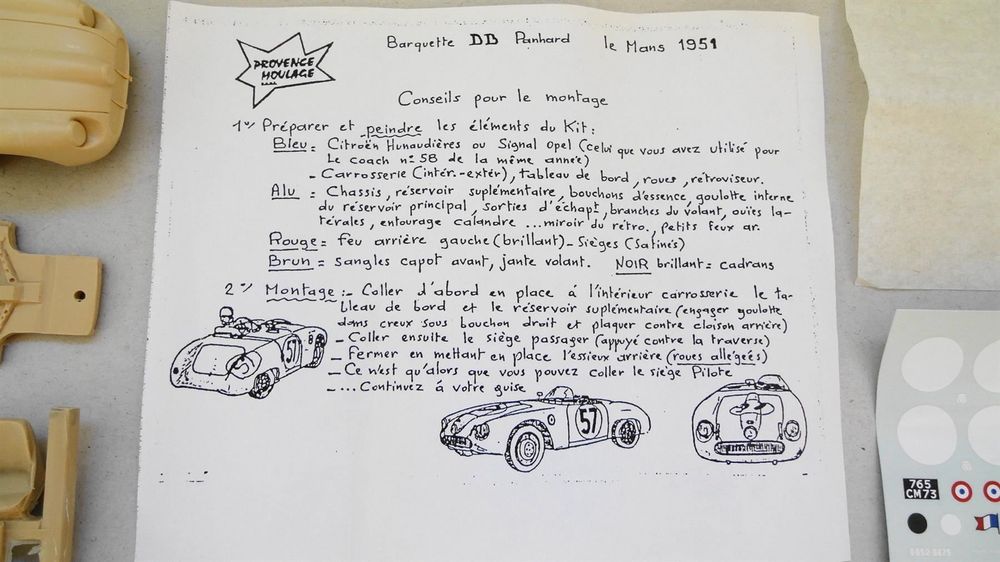 PROVENCE
MOULAGE
Barquette DB Panhard le Mans 1951
Conseils pour le montage
1er/ Préparer et peindre les éléments du Kit:
Bleu = Citroën Hunaudières ou Signal Opel (celui que vous avez utilisé pour
Le coach n° 58 de la même année)
- Carrosserie (intér.-extér), tableau de bord, roues, rétroviseur.
Alu = Chassis, réservoir suplémentaire, bouchons d'essence, goulotte interne
du réservoir principal, sorties d'échapt, branches du volant, ouïes la-
térales, entourage calandre ... miroir du rétro., petits feux ar.
Rouge = feu arrière gauche (brillant) - Sièges (Satinés)
Brun = sangles capot avant, jante volant. NOIR brillant = cadrans
2e/ Montage :- Coller d'abord en place á l'intérieur carrosserie le ta-
bleau de bord et le réservoir suplémentaire (engager goulotte
dans creux sous bouchon droit et plaquer contre cloison arrière)
- Coller ensuite le siège passager (appuyé contre la traverse)
- Fermer en mettant en place l'essieux arrière (roues allégeés)
- Ce n'est qu'alors que vous pouvez coller le siège Pilote
- ... Continuez á votre guise
57
57
765
CM 73